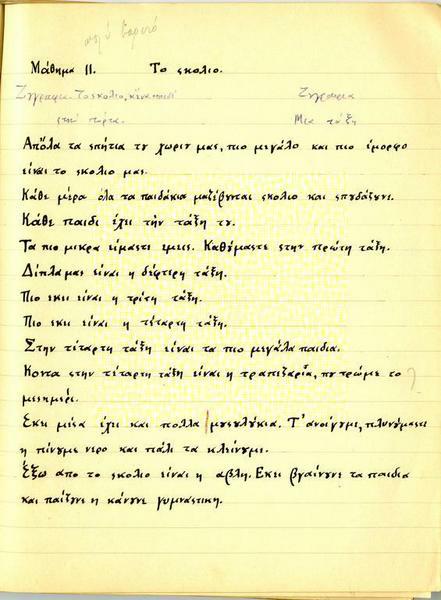 Μάθημα 11. Το ςκολιο.
Ζγγραφια. Το ςκολιο, κ'ενα παιδι Ζγγραφια
ςτην πόρτα. Μια τάξη
Απ'όλα τα ςπήτια τυ χωριυ μας, πιο μεγάλο και πιο έμορφο
είναι το ςκολιο μας.
Κάθε μέρα όλα τα παιδάκια μαζέβυνται ςκολιο και ςπυδάζυνε.
Κάθε παιδι έχει τήν τάξη τυ.
Τα πιο μικρα είμαςτε εμεις. Καθύμαςτε ςτην πρώτη τάξη.
Δίπλα μας είναι η δέφτερη τάξη.
Πιο εκει είναι η τρίτη τάξη.
Πιο εκι είναι η τέταρτη τάξη.
Στην τέταρτη τάξη είναι τα πιο μεγάλα παιδια.
Κοντα ςτην τέταρτη τάξη είναι η τραπεζαρία, πυ τρώμε το ?
μεςημέρι.
Εκι μέςα έχει και πολλα μυςυλύκια. Τ'ανοίγυμε, πλυνύμαςτε
η πίνυμε νερο και πάλι τα κλείνυμε.
Έξω απο το ςκολιο είναι η αβλη. Εκι βγαίνυνε τα παιδια
και παίζυνε η κάνυνε γυμναςτικη.